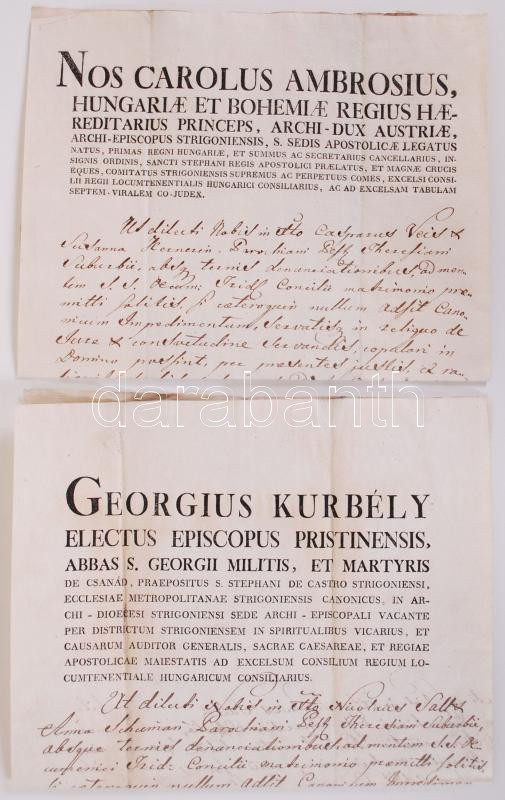 NOS CAROLUS AMBROSIUS,
HUNGARIÆ ET BOHEMIÆ REGIUS HÆ-
REDITARIUS PRINCEPS, ARCHI-DUX AUSTRIÆ,
ARCHI-EPISCOPUS STRIGONIENSIS, S. SEDIS APOSTOLICÆ LEGATUS
NATUS, PRIMAS REGNI HUNGARIÆ, ET SUMMUS AC SECRETARIUS CANCELLARIUS, IN-
SIGNIS ORDINIS, SANCTI STEPHANI REGIS APOSTOLICI PRÆLATUS, ET MAGNÆ CRUCIS
EQUES, COMITATUS STRIGONIENSIS SUPREMUS AC PERPETUUS COMES, EXCELSI CONSI-
LII REGII LOCUMTENENTIALIS HUNGARICI CONSILIARIUS, AC AD EXCELSAM TABULAM
SEPTEM-VIRALEM CO-JUDEX.
Ut dilecti Nobis in Xto Casparus Veis &
Susanna Parochiani Pesth Theresiani
Suburbii, absq ternis denunciationibus, ad men-
tem S. S. Oecum: Trid: Concilii matrimonio præ-
mitti solitis, si cæteroquin nullum adsit Cano-
nicum Impedimentum, Servatisq in reliquo de
Jure & consvetudine Servandis, copulari in
Domino possint, per præsentes justis, ex ra-
darabanth
GEORGIUS KURBÉLY
ELECTUS EPISCOPUS PRISTINENSIS,
ABBAS S. GEORGII MILITIS, ET MARTYRIS
DE CSANÁD, PRAEPOSITUS S. STEPHANI DE CASTRO STRIGONIENSI,
ECCLESIAE METROPOLITANAE STRIGONIENSIS CANONICUS, IN AR-
CHI-DIOECESI STRIGONIENSI SEDE ARCHI-EPISCOPALI VACANTE
PER DISTRICTUM STRIGONIENSEM IN SPIRITUALIBUS VICARIUS, ET
CAUSARUM AUDITOR GENERALIS, SACRAE CAESAREAE, ET REGIAE
APOSTOLICAE MAIESTATIS AD EXCELSUM CONSILIUM REGIUM LO-
CUMTENENTIALE HUNGARICUM CONSILIARIUS.
Ut dilecti Nobis in Xto Nicolaus &
Anna Schuman Parochiani Pesth Theresiani Suburbii,
absque ternis denunciationibus, ad mentem S. S. Oe-
cumenici Trid: Concilii matrimonio præmitti solitis,
si cæteroquin nullum adsit Canonicum